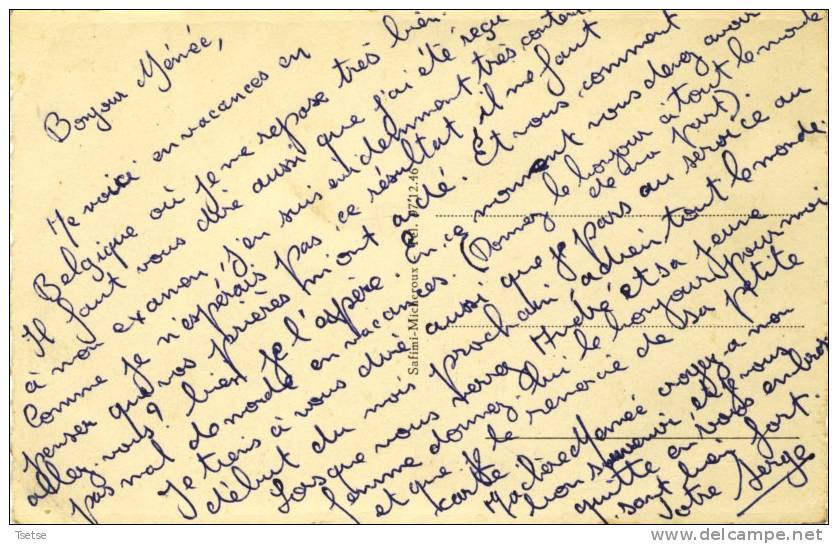 Bonjour Mémée,
Me voici en vacances en
Belgique où je me repose très bien.
Il faut vous dire aussi que j'ai été reçu
à mon examen, j'en suis évidemment très content
comme je n'espérais pas ce résultat il me faut
penser que vos prières m'ont aidé. Et vous, comment
allez vous? bien je l'espère. en ce moment vous devez avoir
pas mal de monde en vacances. (Donnez le bonjour à tout le monde
de ma part).
Je tiens à vous dire aussi que je pars au service au
début du mois prochain, adieu tout le monde.
Lorsque vous verrez André et sa jeune
femme donnez lui le bonjour pour moi
et que je le remercie de sa petite
carte
Ma chère Mémée croyez à mon
bon souvenir et je vous
quitte en vous embrassant bien fort.
Votre Serge
Safimi-Micheroux - Tél. 07.12.46
Tsetse
www.delcampe.net